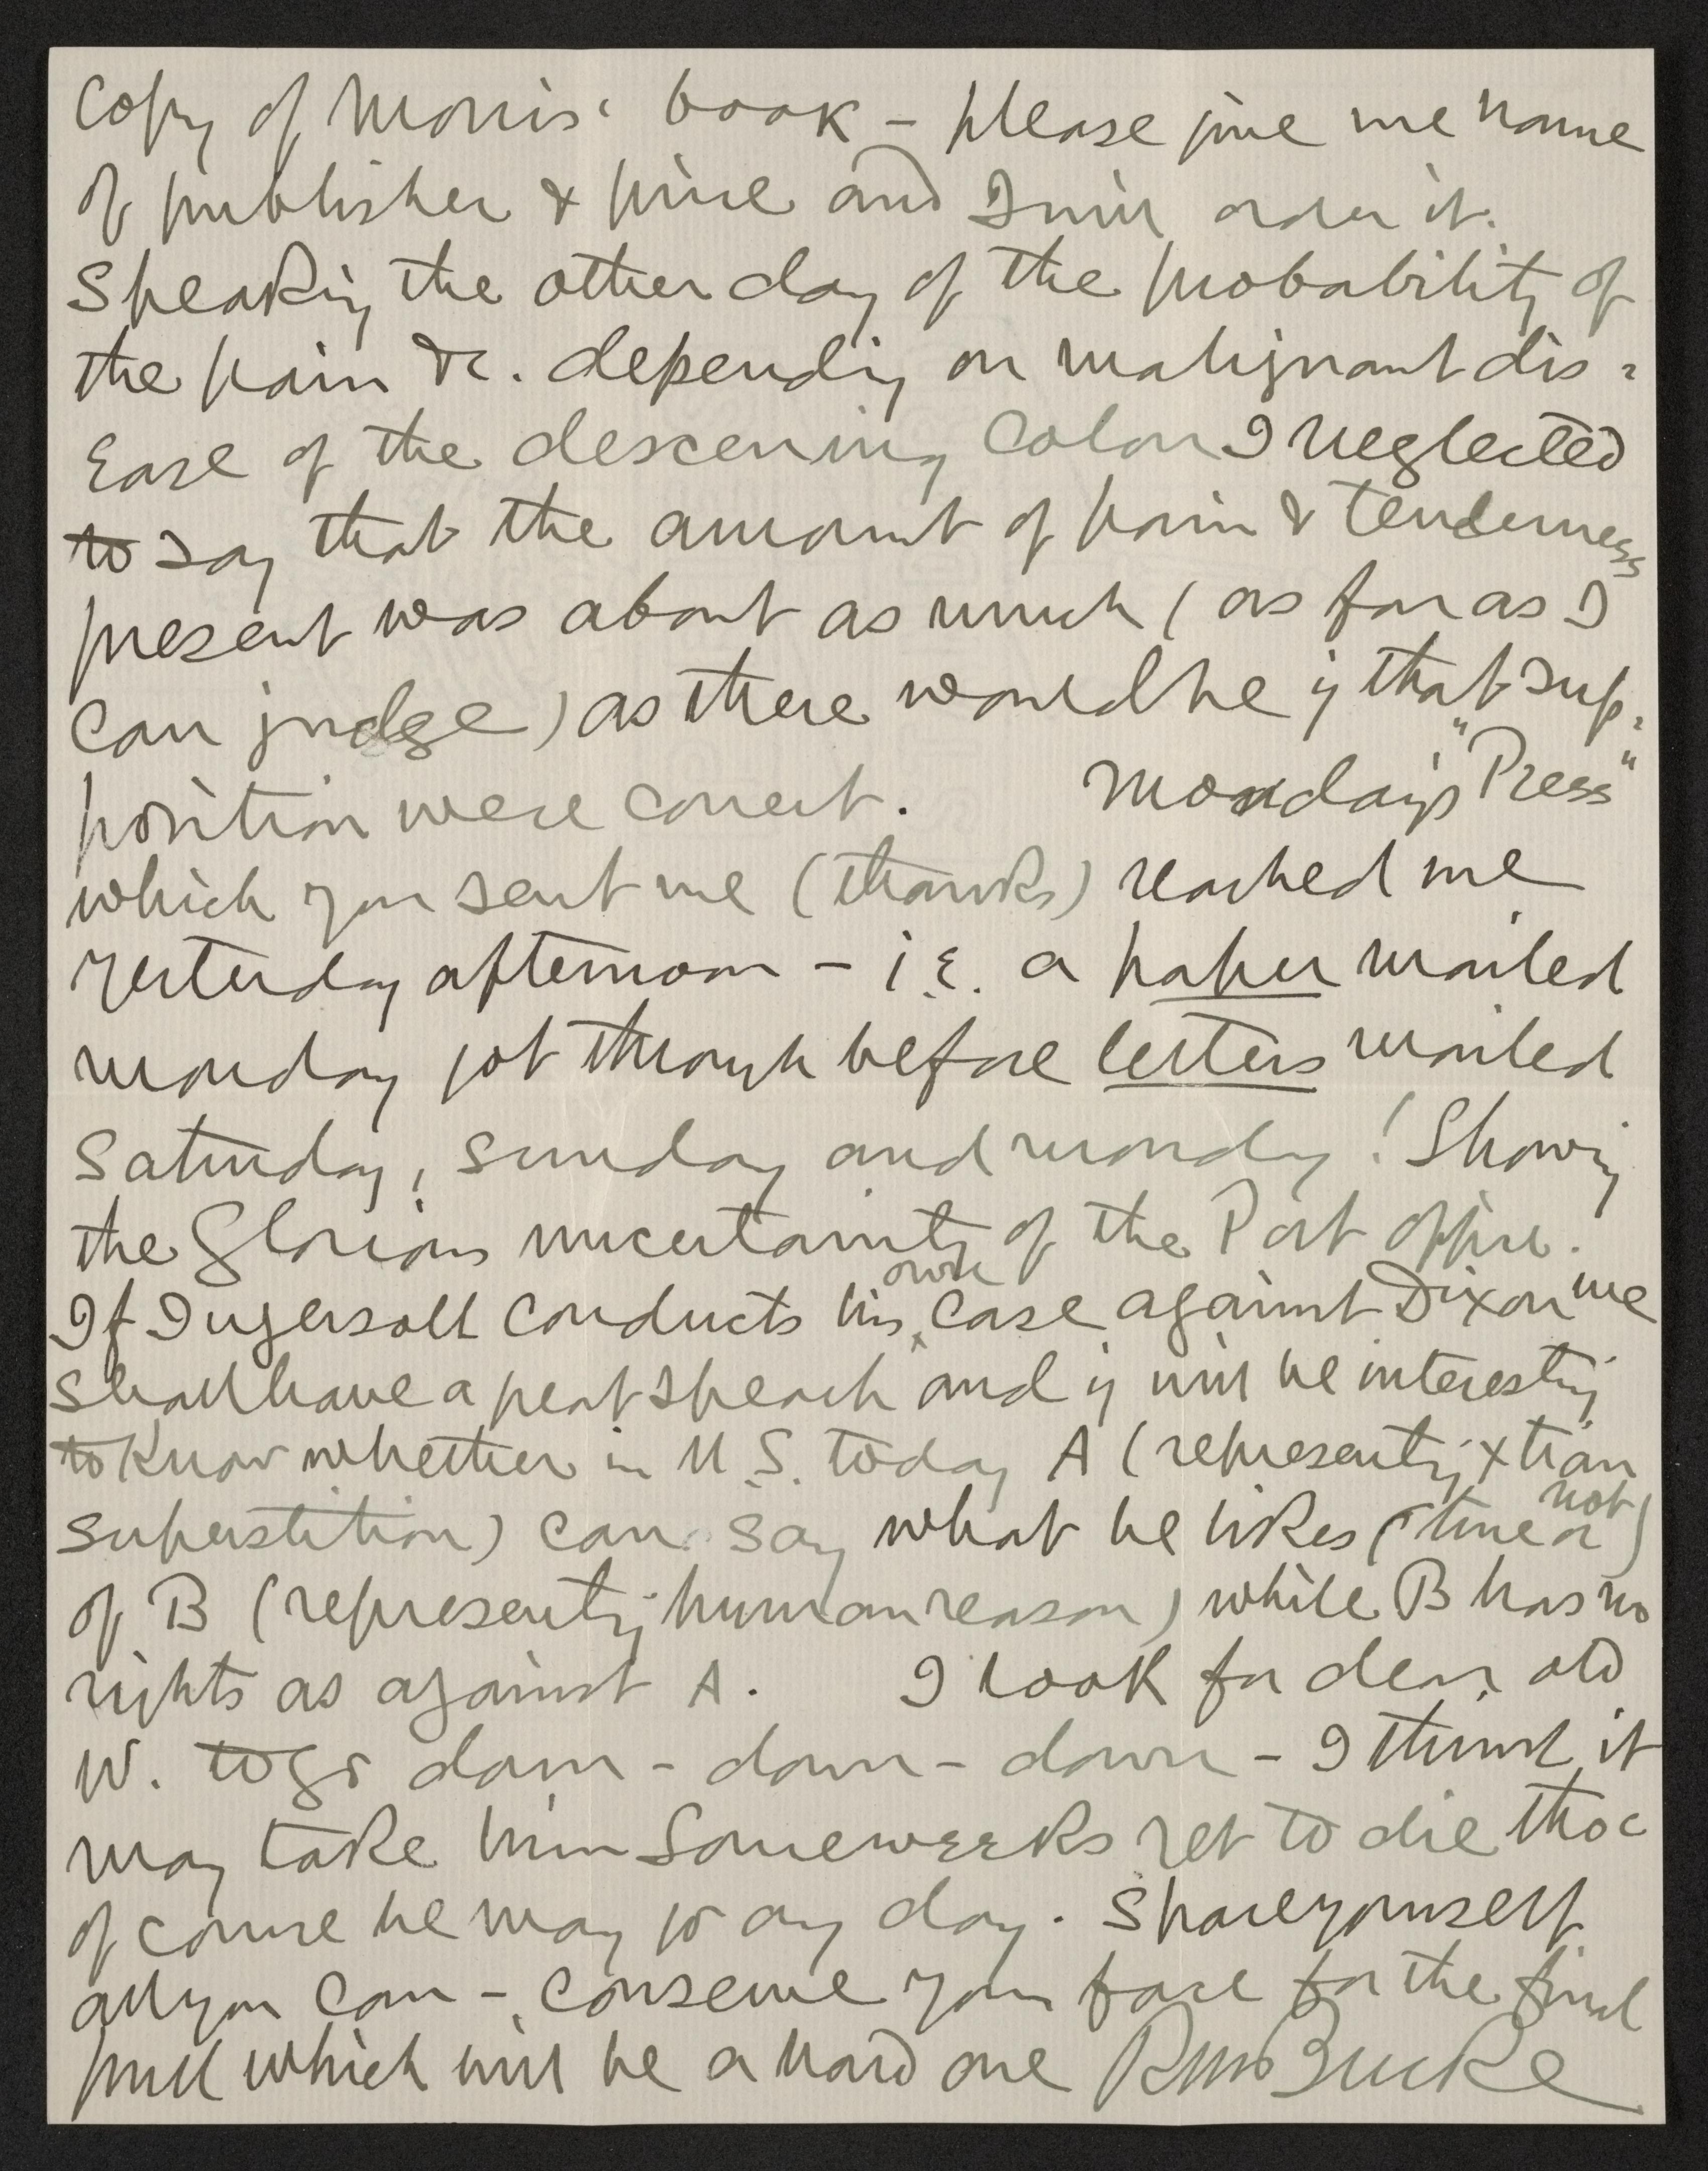 Copy of Morris' book – please give me name
of publisher & price and I will order it.
Speaking the other day of the probability of
the pain &c. depending on malignant dis-
ease of the descening colon I neglected
to say that the amount of pain & tenderness
present was about as much (as far as I
can judge) as there would be if that sup-
position were correct. Monday's "Press"
which you sent me (thanks) reached me
yesterday afternoon – i.e. a paper mailed
monday got through before letters mailed
Saturday, Sunday and monday! Showing
the Glorious uncertainty of the Post office.
If Ingersoll conducts his own case against Dixon we
shall have a great speech and it will be interesting
to know whether in U.S. today A (representing Xtian
superstition) can say what he likes (true or not)
of B (representing human reason) while B has no
rights as against A. I look for dear old
W. to go down – down – down – I think it
may take him some weeks yet to die tho'
of course he may go any day. Spare yourself
all you can – conserve your force for the final
pull which will be a hard one RM Bucke